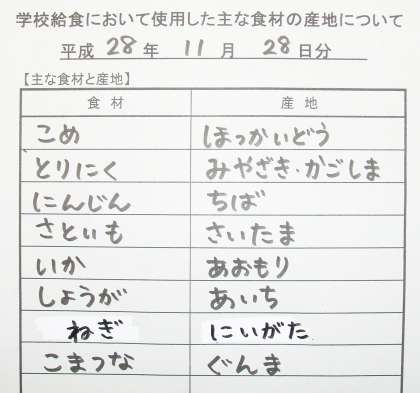 学校給食において使用した主な食材の産地について
平成 28 年 11 月 28 日分
【主な食材と産地】
食 材 産 地
こめ ほっかいどう
とりにく みやざき・かごしま
にんじん ちば
さといも さいたま
いか あおもり
しょうが あいち
ねぎ にいがた
こまつな ぐんま